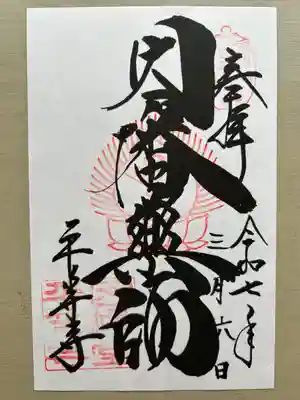 奉拝
令和七年
三月六日
因幡薬師
平等寺